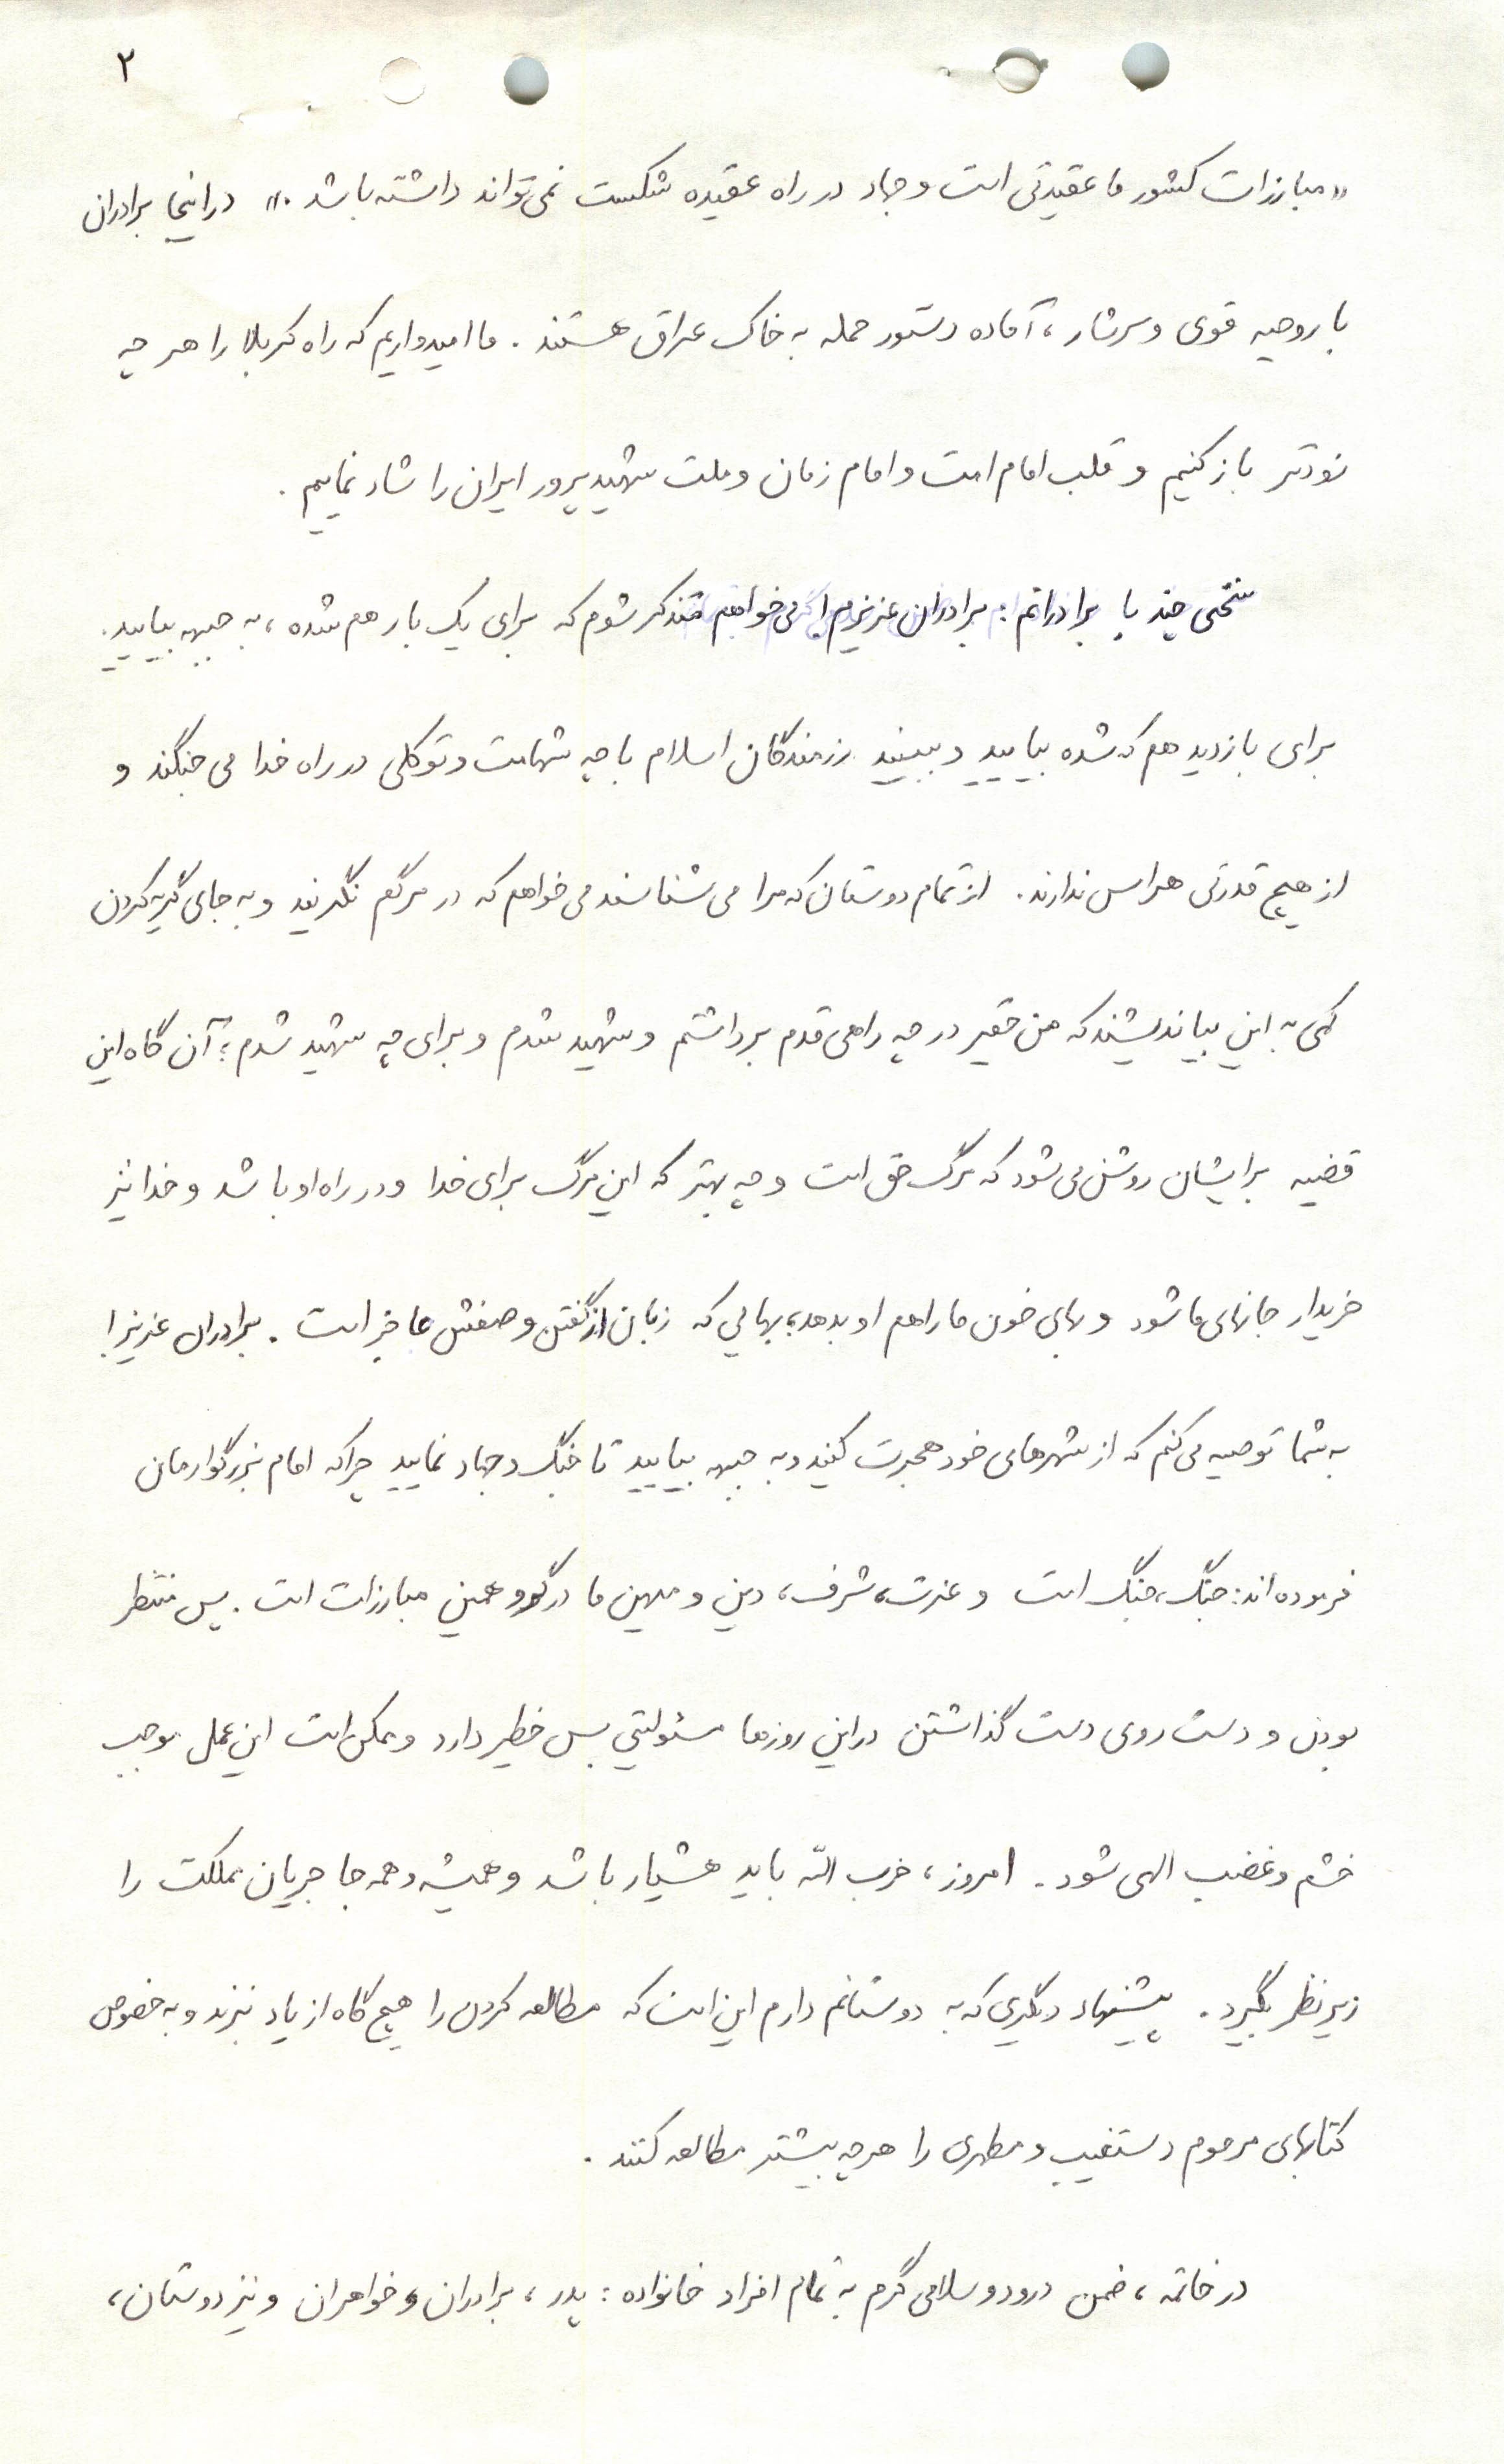 ۲
«مبارزات کشور ما عقیدتی است و جهاد در راه عقیده شکست نمی‌تواند داشته باشد.» در اینجا برادران
با روحیه قوی و سرشار، آماده دستور حمله به خاک عراق هستند. ما امیدواریم که راه کربلا را هر چه
زودتر باز کنیم و قلب امام امت و امام زمان و ملت شهیدپرور ایران را شاد نماییم.
سخنی چند با برادرانم: برادران عزیزم! می‌خواهم متذکر شوم که برای یک بار هم شده، به جبهه بیایید.
برای بازدید هم که شده بیایید و ببینید رزمندگان اسلام با چه شهامت و توکلی در راه خدا می‌جنگند و
از هیچ قدرتی هراس ندارند. از تمام دوستان که مرا می‌شناسند می‌خواهم که در مرگم نگریند و به جای گریه کردن
کمی به این بیاندیشند که من حقیر در چه راهی قدم برداشتم و شهید شدم و برای چه شهید شدم؛ آن گاه این
قضیه برایشان روشن می‌شود که مرگ حق است و چه بهتر که این مرگ برای خدا و در راه او باشد و خدا نیز
خریدار جانهای ما شود و بهای خون ما را هم او بدهد، بهایی که زبان از گفتن وصفش عاجز است. برادران عزیز!
به شما توصیه می‌کنم که از شهرهای خود هجرت کنید و به جبهه بیایید تا جنگ و جهاد نمایید چرا که امام بزرگوارمان
فرموده‌اند: جنگ، جنگ است و عزت، شرف، دین و میهن ما در گرو همین مبارزات است. پس منتظر
بودن و دست روی دست گذاشتن در این روزها مسئولیتی بس خطیر دارد و ممکن است این عمل موجب
خشم و غضب الهی شود. امروز، حزب الله باید هشیار باشد و همیشه و همه جا جریان مملکت را
زیر نظر بگیرد. پیشنهاد دیگری که به دوستانم دارم این است که مطالعه کردن را هیچ گاه از یاد نبرند و به خصوص
کتابهای مرحوم دستغیب و مطهری را هر چه بیشتر مطالعه کنند.
در خاتمه، ضمن درود و سلامی گرم به تمام افراد خانواده: پدر، برادران و خواهران و نیز دوستان،